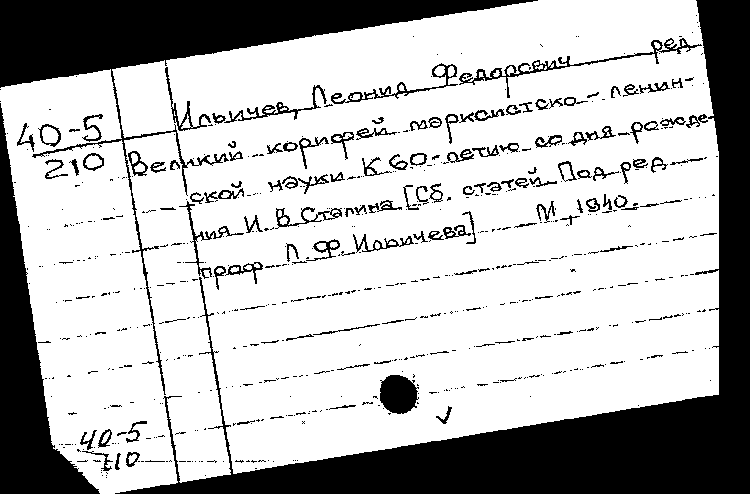 Ильичев, Леонид Федорович ред
40-5
210
Великий корифей марксистско-ленин-
ской науки К 60-летию со дня рожде-
ния И. В Сталина [Сб. статей Под ред
проф Л. Ф. Ильичева] М, 1940.
40-5
110